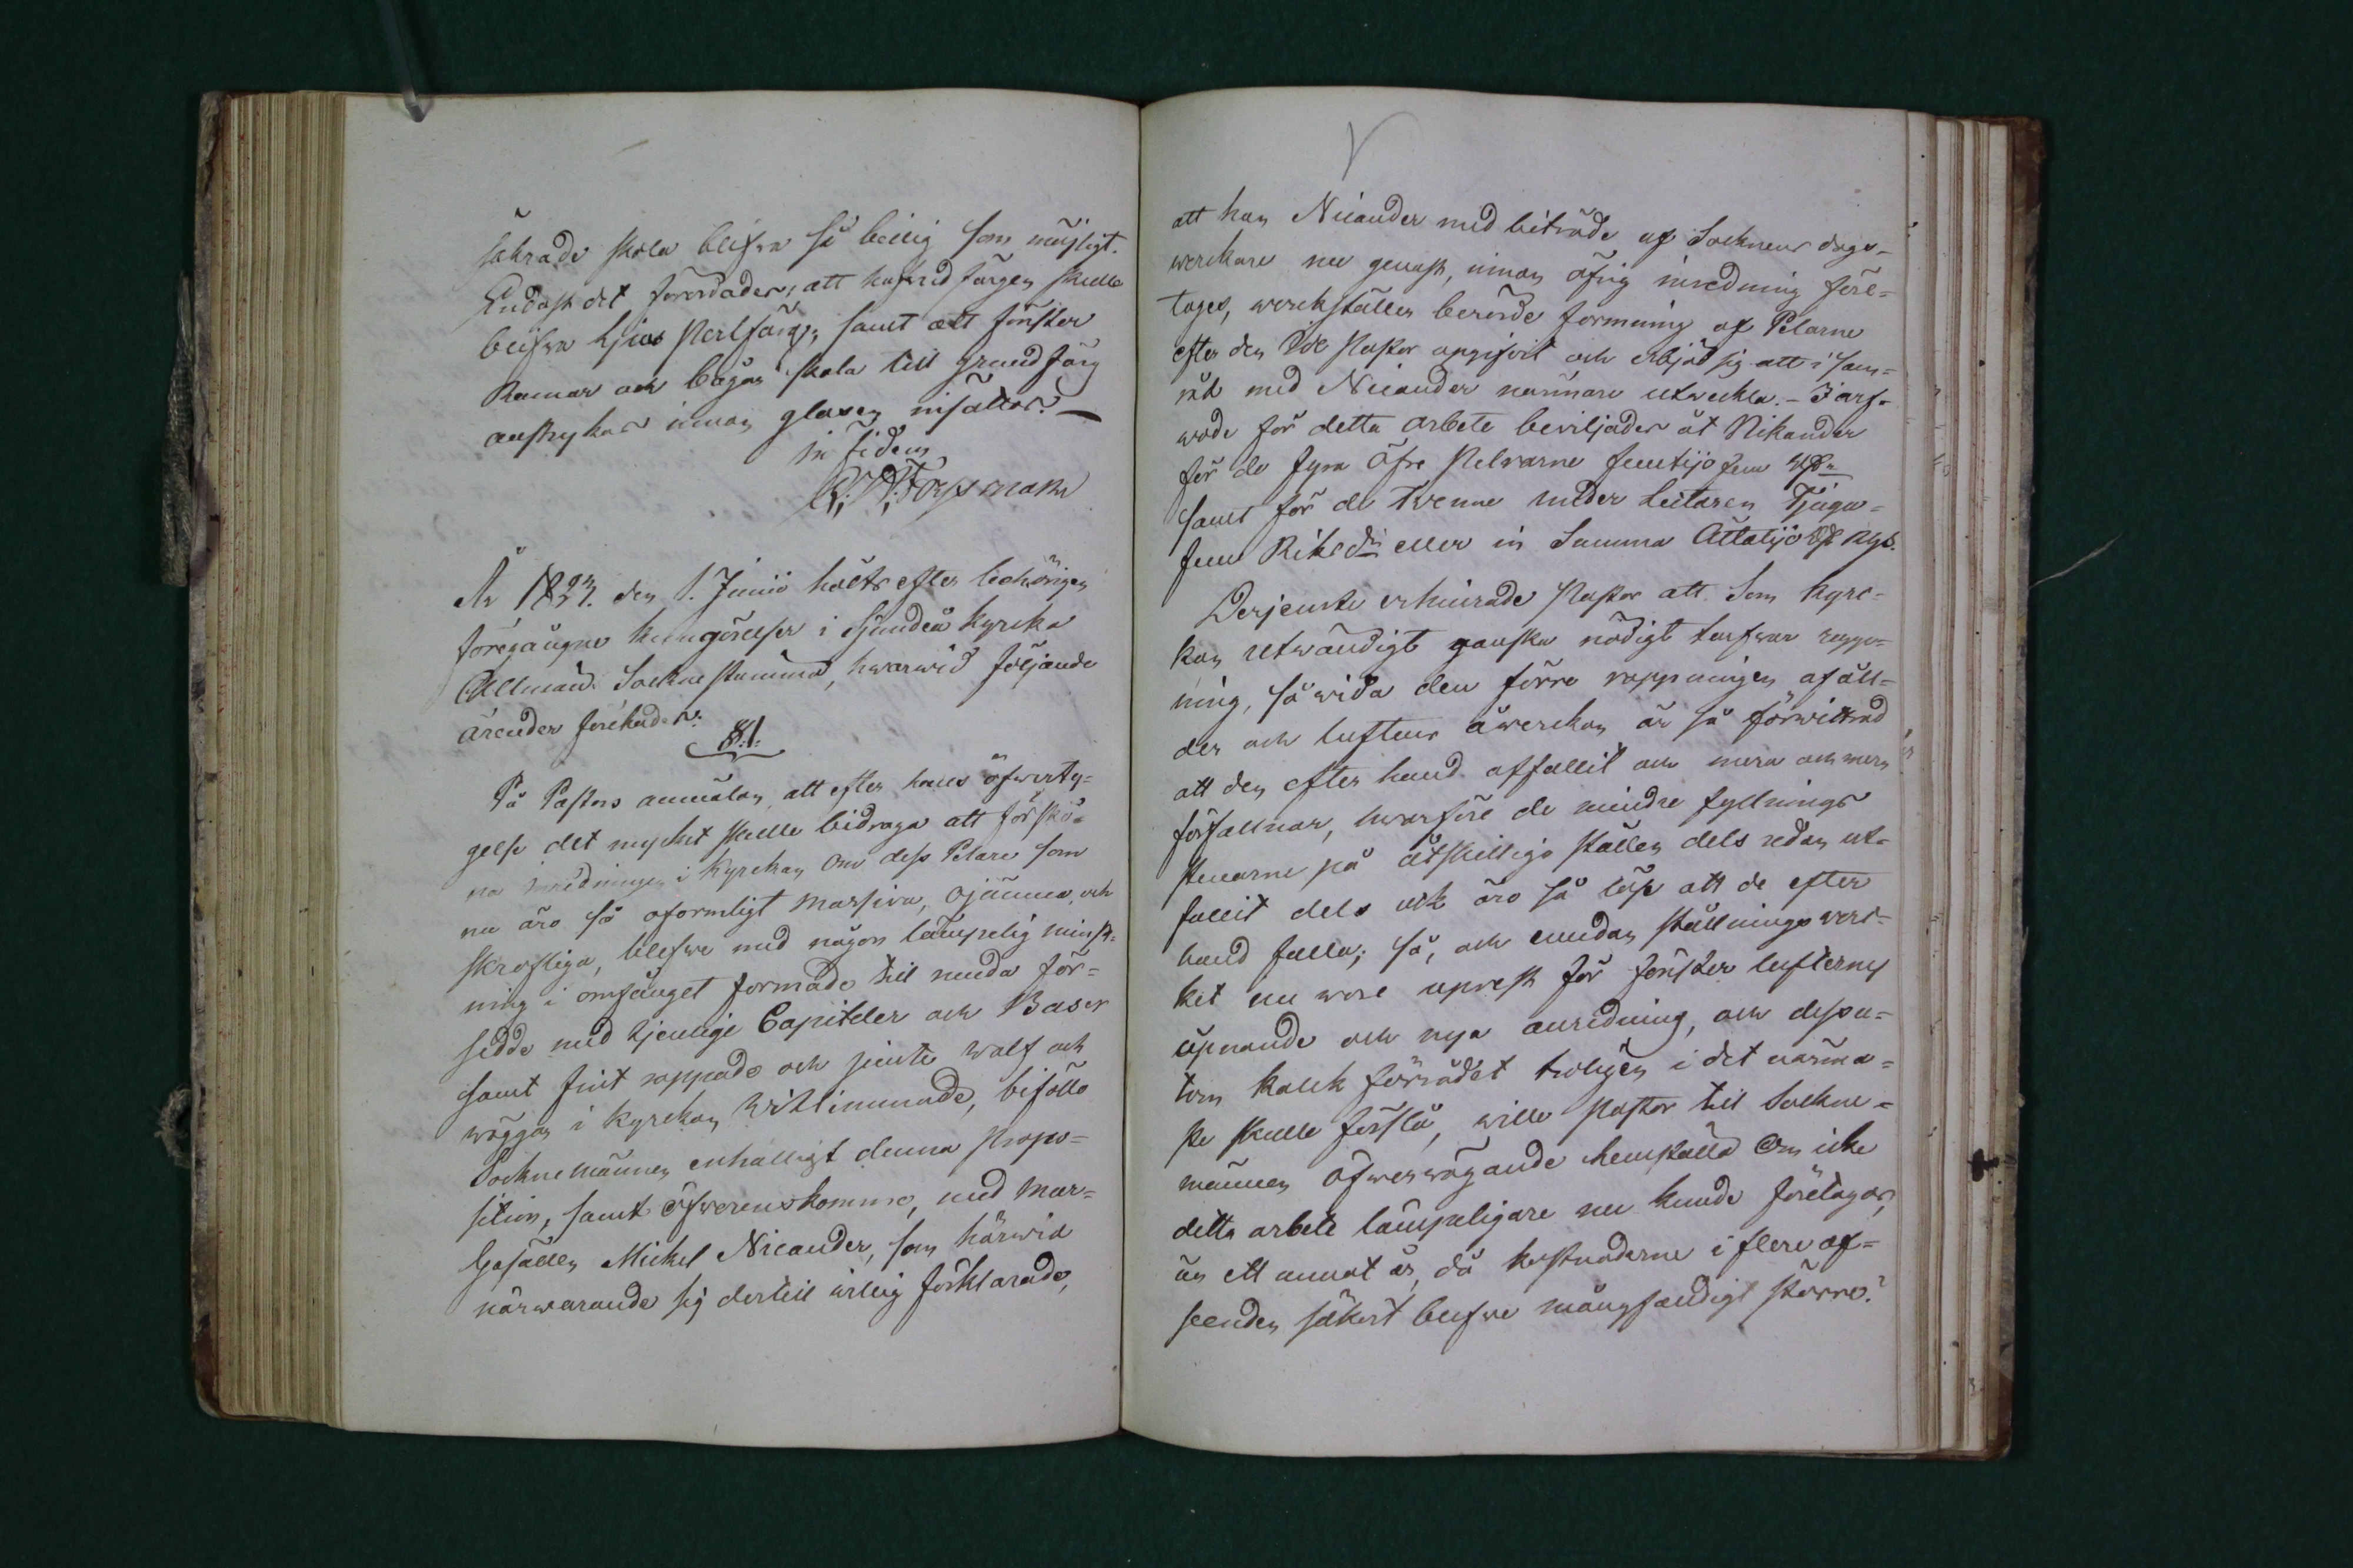 såkrade skola blifva så billig som möjligt.
Endast det förordades, att hufvud färgen skulle
blifva ljus Perlfärg, samt att fönster
Ramar och bågar skola till grundfärg
anstrykas innan glasen insättes.
in fidem
Forssman
År 1823. den 1. Junii hölts efter behörigen
föregångne kungörelser i Sjundeå Kyrka
Allmän Sockne stämma, hvarwid följande
ärender förehades:
§.1.
På Pastors anmälan, att efter hans öfwerty-
gelse det mycket skulle bidraga att förskö-
na inredningen i Kyrkan om dess Pelare som
nu äro så oformligt massiva, ojämna, och
skrofliga, blefwe med någon lämpelig minsk-
ning i omfånget formade til runda för-
sedde med tjenlige Capiteler och Baser
samt fint rappade och jemte walf och
wäggar i Kyrkan hvitlimmade, biföllo
Sockne männen enhälligt denna Propo-
sition, samt öfverenskommo, med Mur-
Gesällen Michel Nicander, som härwid
närwarande sig dertill willig förklarade,
att han Nicander med biträde af Socknens dags-
werkare nu genast, innan öfrig inredning före-
tages, werkställer berörde formning af Pelarne
efter den Idé Pastor opgifvit och erbjöd sig att i sam-
råd med Nicander närmare utveckla. - I arf-
wode för detta arbete beviljades åt Nikander
för de fyra öfre Pelrarne femtijo fem Rd
samt för de twenne under Lectaren Tjugu-
fem Riksdr eller in Summa Åttatijo Rd Rgs.
Derjemte erhindrade Pastor att Som Kyrc-
kan utwändigt ganska nödigt tarfvar rapp-
ning, så wida den förre rappningen af äl-
der och luftens åwerkan är så förwittrad
att den efter hand affallit och mera och mera
förfallnar, hvarföre de mindre fyllnings
stenarne på åtskillige ställen dels redan ut-
fallit dels ock äro så löse att de efter
hand falla; så, och emedan ställnings ver-
ket nu vore uprest för fönster lufternes
öpnande och nya anredning, och dessu-
tom kalk förrådet troligen i det närma-
ste skulle förslå, wille Pastor til Sockne-
männen öfwerwägande hemställa om icke
detta arbete lämpeligare nu kunde företagas,
än ett annat år, då kostnaderne i flere af-
seenden säkert blefve mångfaldigt större?